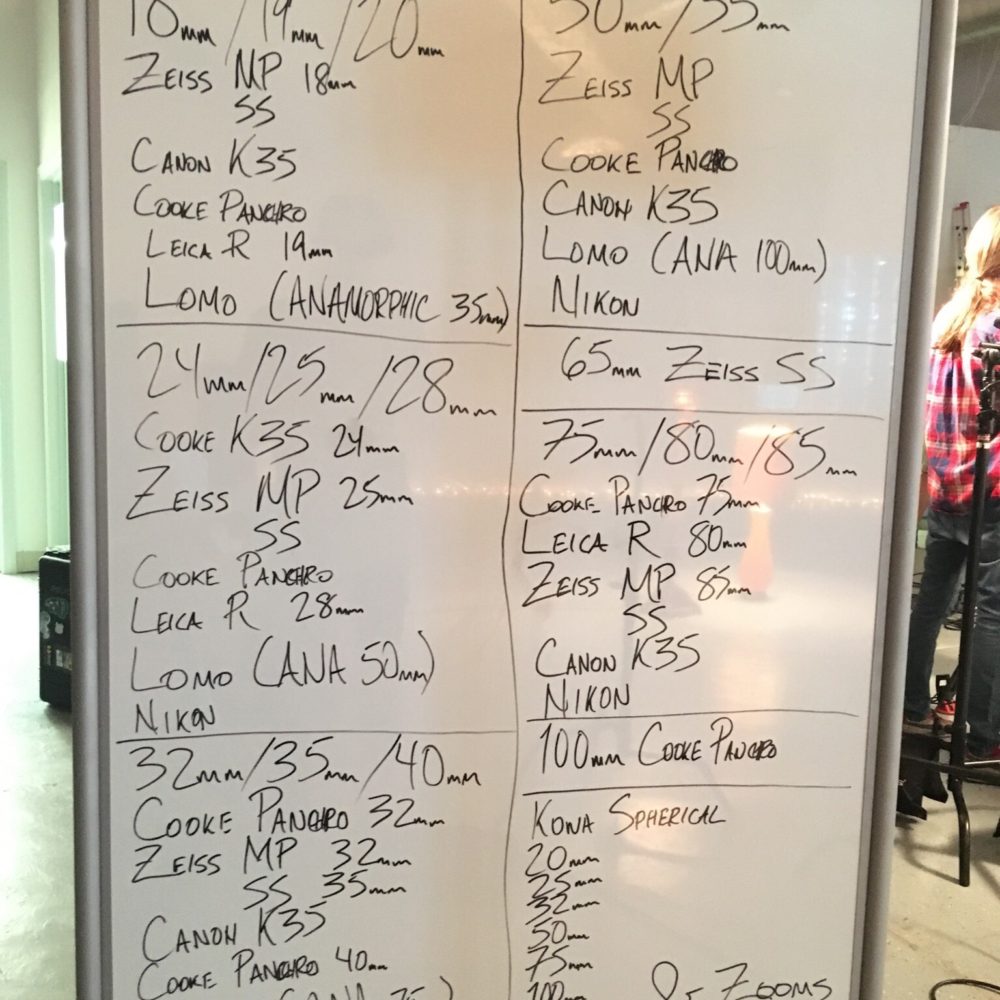 18mm/19mm/20mm
ZEISS MP 18mm
SS
CANON K35
COOKE PANCHRO
LEICA R 19mm
LOMO (ANAMORPHIC 35mm)
24mm/25mm/28mm
COOKE K35 24mm
ZEISS MP 25mm
SS
COOKE PANCHRO
LEICA R 28mm
LOMO (ANA 50mm)
NIKON
32mm/35mm/40mm
COOKE PANCHRO 32mm
ZEISS MP 32mm
SS 35mm
CANON K35
COOKE PANCHRO 40mm
(ANA 75)
50mm/55mm
ZEISS MP
SS
COOKE PANCHRO
CANON K35
LOMO (ANA 100mm)
NIKON
65mm ZEISS SS
75mm/80mm/85mm
COOKE PANCHRO 75mm
LEICA R 80mm
ZEISS MP 85mm
SS
CANON K35
NIKON
100mm COOKE PANCHRO
KOWA SPHERICAL
20mm
25mm
32mm
50mm
75mm
100mm
ZOOMS